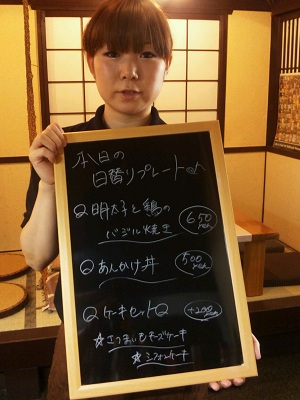 本日の
日替リプレート♪
明太子と鶏の
バジル焼き 650yen
あんかけ丼 500yen
ケーキセット +200yen
☆さつまいもチーズケーキ
☆シフォンケーキ